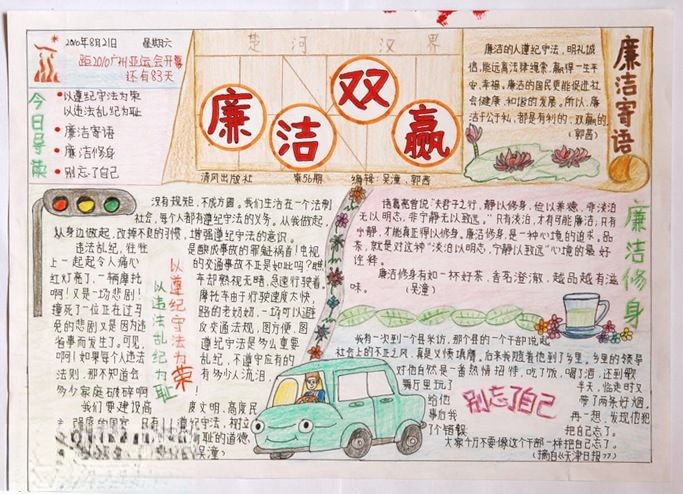 2010年8月21日 星期六
距2010广州亚运会开幕
还有83天
今日导菜
以遵纪守法为荣
以违法乱纪为耻
廉洁寄语
廉洁修身
别忘了自己
楚河 汉界
廉洁双赢
清风出版社 第56期 编辑:吴潼、郭茜
廉洁的人遵纪守法,明礼诚
信,能远离法律绳索,赢得一生平
安、幸福。廉洁的国民更能促进社
会健康、和谐的发展。所以,廉
洁于公于私,都是有利的、双赢的。
(郭茜)
廉洁寄语
没有规矩,不成方圆。我们生活在一个法制
社会,每个人都有遵纪守法的义务。从我做起,
从身边做起,改掉不良的习惯,增强遵纪守法的意识。
违法乱纪,往往是酿成事故的罪魁祸首!电视
上一起起令人痛心的交通事故不正是如此吗?瞧!
红灯亮了,一辆摩托车却熟视无睹,急速行驶着。
啊!又是一场悲剧!摩托车由于行驶速度太快,
撞死了一位正在过马路的老奶奶,一场可以避
免的悲剧又是因为违反交通法规,图方便,图
省事而发生了。可见,遵纪守法是多么重要
啊!如果每个人违法乱纪,不遵守应有的
法则,那不知道会有多少人流泪,
多少家庭破碎啊!
我们要建设高度文明,高度民
以遵纪守法为荣
以违法乱纪为耻
诸葛亮曾说"夫君子之行,静以修身,俭以养德,非淡泊
无以明志,非宁静无以致远。"只有淡泊,才有可能廉洁;只有
宁静,才能真正得以修身。廉洁修身,是一种心境的追求。品
茶,就是对这种"淡泊以明志,宁静以致远"心境的最好
诠释。
廉洁修身有如一杯好茶,香茗澄澈,越品越有滋
味。(吴潼)
廉洁修身
我有一次到一个县采访,那个县的一个干部说起
社会上的不正之风,真是义愤填膺。后来我随着他到了乡里,乡里的领导
对他自然是一番热情招待,吃了饭,喝了酒,还到歌
舞厅里玩了半天,临走时又
给他带了两条好烟。
事后我再一想,发现他犯
了个错误把自己忘了。
大家千万不要像这个干部一样把自己忘了。
(摘自《天津日报》)
别忘了自己